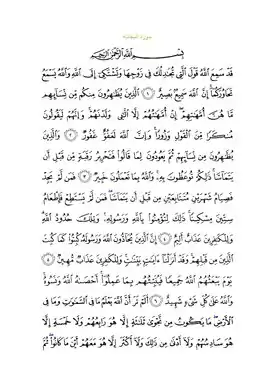 سورة المجادلة
بسم الله الرحمن الرحيم
قد سمع الله قول التي تجدلك في زوجها وتشتكي إلى الله والله يسمع
تحاوركما إن الله سميع بصير ١ الذين يظهرون منكم من نسائهم
ما هن أمهتهم إن أمهتهم إلا التي ولدنهم وإنهم ليقولون
منكرا من القول وزورا وإن الله لعفو غفور ٢ والذين
يظهرون من نسائهم ثم يعودون لما قالوا فتحرير رقبة من قبل أن
يتماسا ذلكم توعظون به والله بما تعملون خبير ٣ فمن لم يجد
فصيام شهرين متتابعين من قبل أن يتماسا فمن لم يستطع فإطعام
ستين مسكينا ذلك لتؤمنوا بالله ورسوله وتلك حدود الله
وللكفرين عذاب أليم ٤ إن الذين يحادون الله ورسوله كبتوا كما كبت
الذين من قبلهم وقد أنزلنا ءايت بينت وللكفرين عذاب مهين ٥
يوم يبعثهم الله جميعا فينبئهم بما عملوا أحصىه الله ونسوه
والله على كل شيء شهيد ٦ ألم تر أن الله يعلم ما في السموت وما في
الأرض ما يكون من نجوى ثلثة إلا هو رابعهم ولا خمسة إلا
هو سادسهم ولا أدنى من ذلك ولا أكثر إلا هو معهم أين ما كانوا ثم